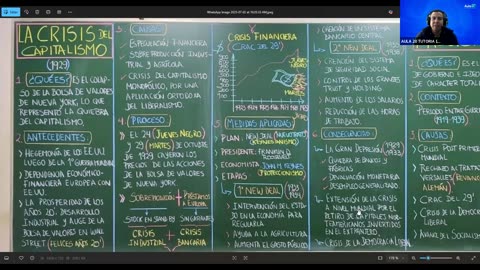 WhatsApp Image
AULA 28 TUTORIA L.
LA CRISIS DEL
CAPITALISMO
(1929)
1. ¿QUÉ ES?
ES EL COLAP-
SO DE LA BOLSA DE VALORES
DE NUEVA YORK, LO QUE
REPRESENTÓ LA QUIEBRA
DEL CAPITALISMO.
2. ANTECEDENTES
HEGEMONÍA DE LOS EE.UU
LUEGO DE LA 1° GUERRA MUNDIAL
DEPENDENCIA ECONÓMICO-
FINANCIERA EUROPEA CON
EE.UU.
LA PROSPERIDAD DE LOS
AÑOS 20: DESARROLLO
INDUSTRIAL Y AUGE DE LA
BOLSA DE VALORES EN WALL
STREET (FELICES AÑOS 20')
3. CAUSAS
ESPECULACIÓN FINANCIERA
SOBREPRODUCCIÓN INDUS-
TRIAL Y AGRÍCOLA
CRISIS DEL CAPITALISMO
MONOPÓLICO, POR UNA
APLICACIÓN ORTODOXA
DEL LIBERALISMO.
4. PROCESO
EL 24 (JUEVES NEGRO)
Y 29 (MARTES) DE OCTUBRE
DE 1929 CAYERON LOS
PRECIOS DE LAS ACCIONES
DE LA BOLSA DE VALORES
DE NUEVA YORK
SOBREPRODUCCIÓN + PRÉSTAMOS A EUROPA
STOCK EN STAND BY
CRISIS + CRISIS
INDUSTRIAL BANCARIA
CRISIS FINANCIERA
(CRAC DEL 29')
JUEVES
NEGRO
MARTES
5. MEDIDAS APLICADAS
PLAN: NEW DEAL (NUEVO TRATO)
PRESIDENTE: FRANKLIN D.
ROOSEVELT
ECONOMISTA: JOHN M. KEYNES
ETAPAS
1° NEW DEAL
INTERVENCIÓN DEL ESTA-
DO EN LA ECONOMÍA PARA
REGULARLA
AYUDA A LA AGRICULTURA
AUMENTA EL GASTO PÚBLICO
CREACIÓN DE UN SISTEMA
BANCARIO CENTRAL
2° NEW DEAL
CREACIÓN DEL SISTEMA
DE SEGURIDAD SOCIAL
CONTROL DE LOS GRANDES
TRUST Y HOLDING
AUMENTO DE LOS SALARIOS
REDUCCIÓN DE LAS HORAS
DE TRABAJO
6. CONSECUENCIAS
LA GRAN DEPRESIÓN (1929 1933)
QUIEBRA DE BANCOS Y
FÁBRICAS
DEVALUACIÓN MONETARIA
DESEMPLEO GENERALIZADO.
EXTENSIÓN DE LA CRISIS
A NIVEL MUNDIAL POR EL
RETIRO DE CAPITALES NOR-
TEAMERICANOS INVERTIDOS
EN EL EXTRANJERO
CRISIS DE LA DEMOCRACIA LIBERAL
1. ¿QUÉ ES?
DE GOBIERNO
DE CARÁCTER TOTAL
2. CONTEXTO
PERIODO ENTRE GUERRAS
(1919-1939)
3. CAUSAS
CRISIS POST PRIMERA
MUNDIAL
RECHAZO AL TRATADO
VERSALLES (REVAN
ALEMÁN)
CRAC DEL 29'
CRISIS DE LA DEMOC
LIBERAL
AVANCE DEL SOCIALISM